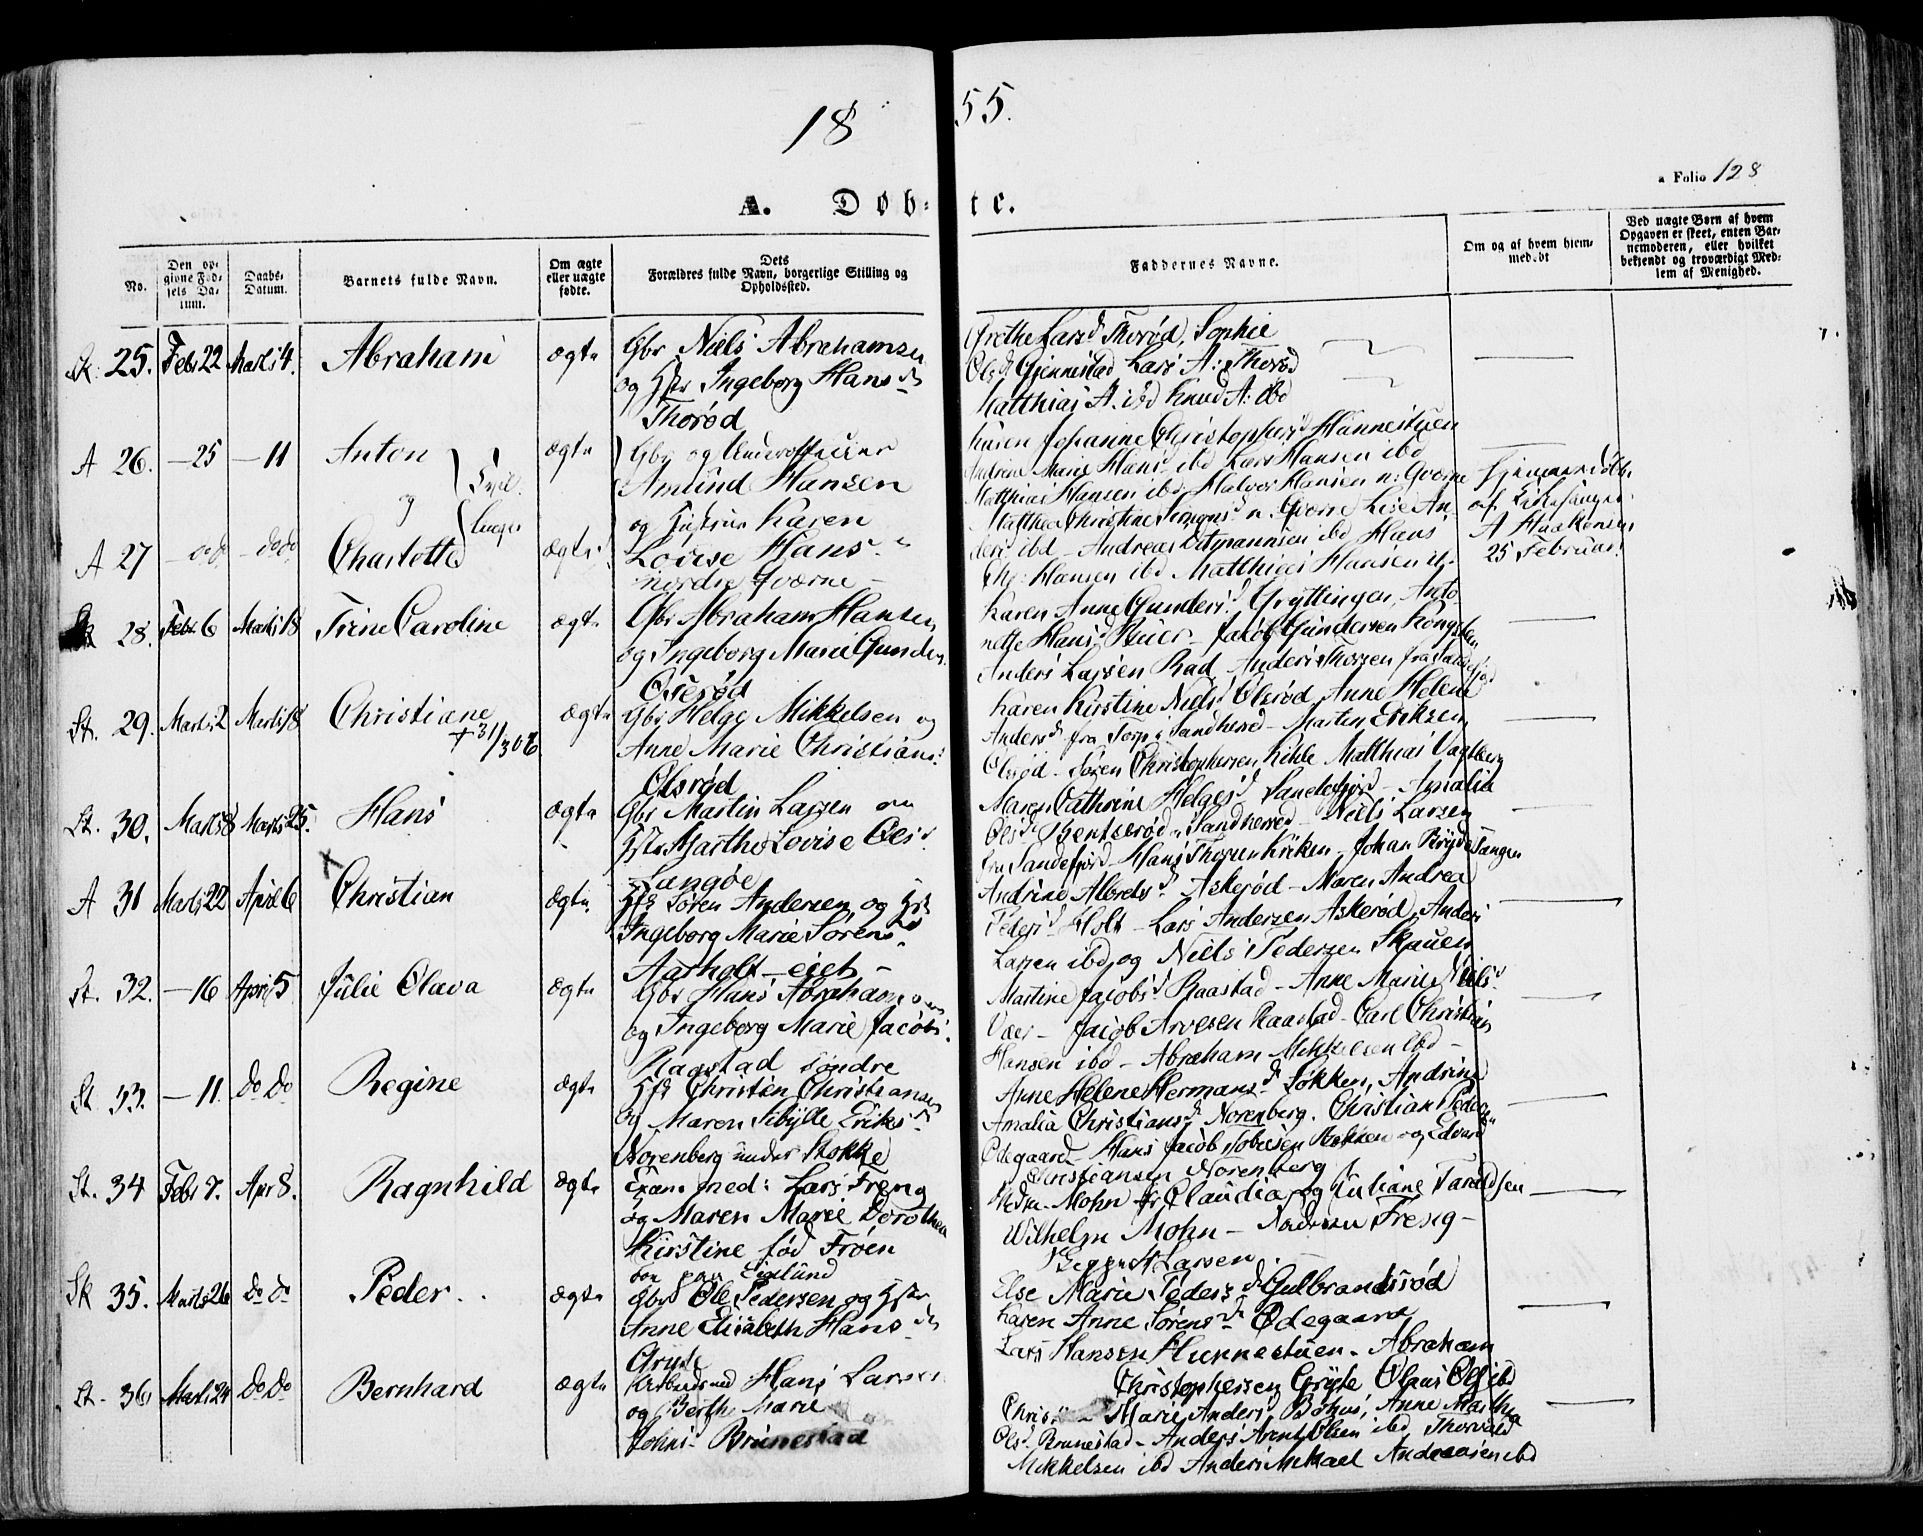 18 55.
a Folio 128
A. Døb- te.
No.
Den op-
givne Fød-
sels Da-
tum.
Daabs-
Datum.
Barnets fulde Navn.
Om ægte
eller uægte
fødte.
Dets
Forældres fulde Navn, borgerlige Stilling og
Opholdssted.
Faddernes Navne.
Om og af hvem hjem-
medøbt
Ved uægte Børn af hvem
Opgaven er skeet, enten Bar-
nemoderen, eller hvilket
bekjendt og troværdigt Med-
lem af Menighed.
Sk. 25. Febr 22 Marts 4. Abraham ægte Gbr Niels Abrahamsen
og Hstr Ingeborg Hansd
Thorød
Grethe Larsd Thorød, Sophie
Olsd Gjennestad Lars A: Thorød
Matthias A. ibd Knud A: ibd
A 26. - 25 - 11 Anton ægte Gbr og Underofficier
og Tvil-
linger
Amund Hansen
A 27 - do do - do do Charlotte ægte og Hustru Karen
Lovise Hansd
nordre Qværne -
Karen Johanne Christophersd Hunnestuen
Andrine Marie Hansd ibd Lars Hansen ibd
Matthias Hansen ibd Halvor Hansen n: Qværne
Matthea Christine Simonsd n. Qværne Lise An-
dersd ibd - Andreas Ditmannsen ibd Hans
Chr: Hansen ibd Matthias Hansen
Hjemmedøbt
af Kirkesanger
A Haakonsen
25 Februar
Sk 28. Febr 6 Marts 18 Trine Caroline ægte Gbr Abraham Hansen
og Ingeborg Marie Gunders
Oserød
Karen Anne Gundersd Gryttingen, Anto-
nette Hansd Buer - Jacob Gundersen Kongsten
Anders Larsen Rad Anders Thorsen fra Sandefjord
St. 29. Marts 2 Marts 18 Christiane ægte Gbr Helge Mikkelsen og
+ 31/3 06
Anne Marie Christiansd
Olsrød
Karen Kirstine Nielsd Olsrød Anne Helene
Andersd fra Torp i Sandherred - Marten Eriksen
Olsrød - Søren Christophersen Kihle Matthias Vagtberg
St. 30. Marts 8 Marts 25. Hans ægte Gbr Martin Larsen og
Hstr Marthe Lovise Olsd
Langøe
Maren Cathrine Helgesd Sandefjord - Amalia
Olsd Bentserød i Sandherred - Niels Larsen
fra Sandefjord - Hans Thorsen Kirken - Johan Brydesangen
A 31 Marts 22 April 6 x Christian ægte Hfd Søren Andersen og Hst
Ingeborg Marie Sørensd
Aarholt-eiet -
Andrine Albretsd Askerød - Maren Andrea
Pedersd Holt - Lars Andersen Askerød Anders
Larsen ibd og Niels Pedersen Skauen
St. 32. - 16 April 5 Julie Olava ægte Gbr Hans Abrahamsen
og Ingeborg Marie Jacobsd
Raastad søndre
Martine Jacobsd Raastad - Anne Marie Nielsd
Vær - Jacob Arvesen Raastad - Carl Christian
Hansen ibd - Abraham Mikkelsen ibd -
St. 33. - 11. Do Do Regine ægte Hfd Christen Christiansen
og Maren Sibylle Eriksd
Norenberg under Stokke
Anne Helene Hermansd Løkken, Andrine
Amalia Christiansd Norenberg. Christian Pedersen
Ødegaard - Hans Jacob Tobiesen Bakken og Edvard
Christiansen Norenberg
St. 34 Febr 7. Apr 8. Ragnhild ægte Exam. med: Lars Freng
og Maren Marie Dorothea
Kirstine fød Frøen
boe paa Eiklund
Wilhelm Mohn - Freng -
Larsen
Sk 35. Marts 26 Do Do Peder. ægte Gbr Ole Pedersen og Hstr
Anne Elisabeth Hansd
Gryte
Else Marie Pedersd Gulbrandsrød
Karen Anne Sørensd Ødegaard
Lars Hansen Hunnestuen - Abraham
Christophersen Gryte Olaus Ols ibd
St. 36 Marts 24 Do Do Bernhard ægte Arbeidsmd Hans Larsen
og Berthe Marie
Johnsd Brunestad
Marie Andersd Bohus, Anne Marthe
Olsd Brunestad - Anders Arent Olsen ibd Thorvald
Mikkelsen ibd Anders Mikael Andreasen ibd